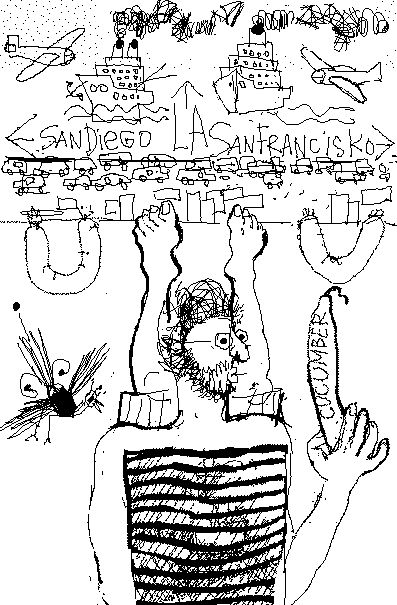 SANDIEGO LA SANFRANCISKO
CUCUMBER